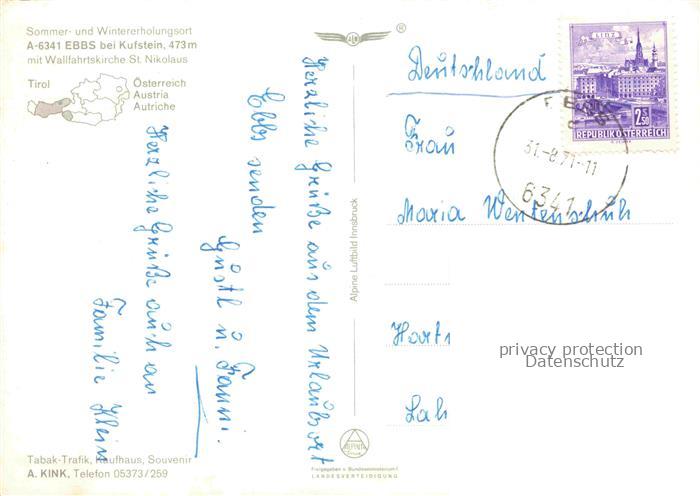 Sommer- und Wintererholungsort
A-6341 EBBS bei Kufstein, 473m
mit Wallfahrtskirche St. Nikolaus
Tirol
Österreich
Austria
Autriche
Herzliche Grüße aus dem Urlaubsort
Ebbs senden
Gustl u. Fanni.
Herzliche Grüße auch an
Familie Klein
Tabak-Trafik, Kaufhaus, Souvenir
A. KINK, Telefon 05373/259
®
Alpine Luftbild Innsbruck
ALPINE
Freigegeben v. Bundesministerium f.
LANDESVERTEIDIGUNG
Deutschland
Frau
Maria Wentenschuh
Lah
LINZ
2.50
REPUBLIK ÖSTERREICH
EBBS
31.-8.71-11
6341
privacy protection
Datenschutz